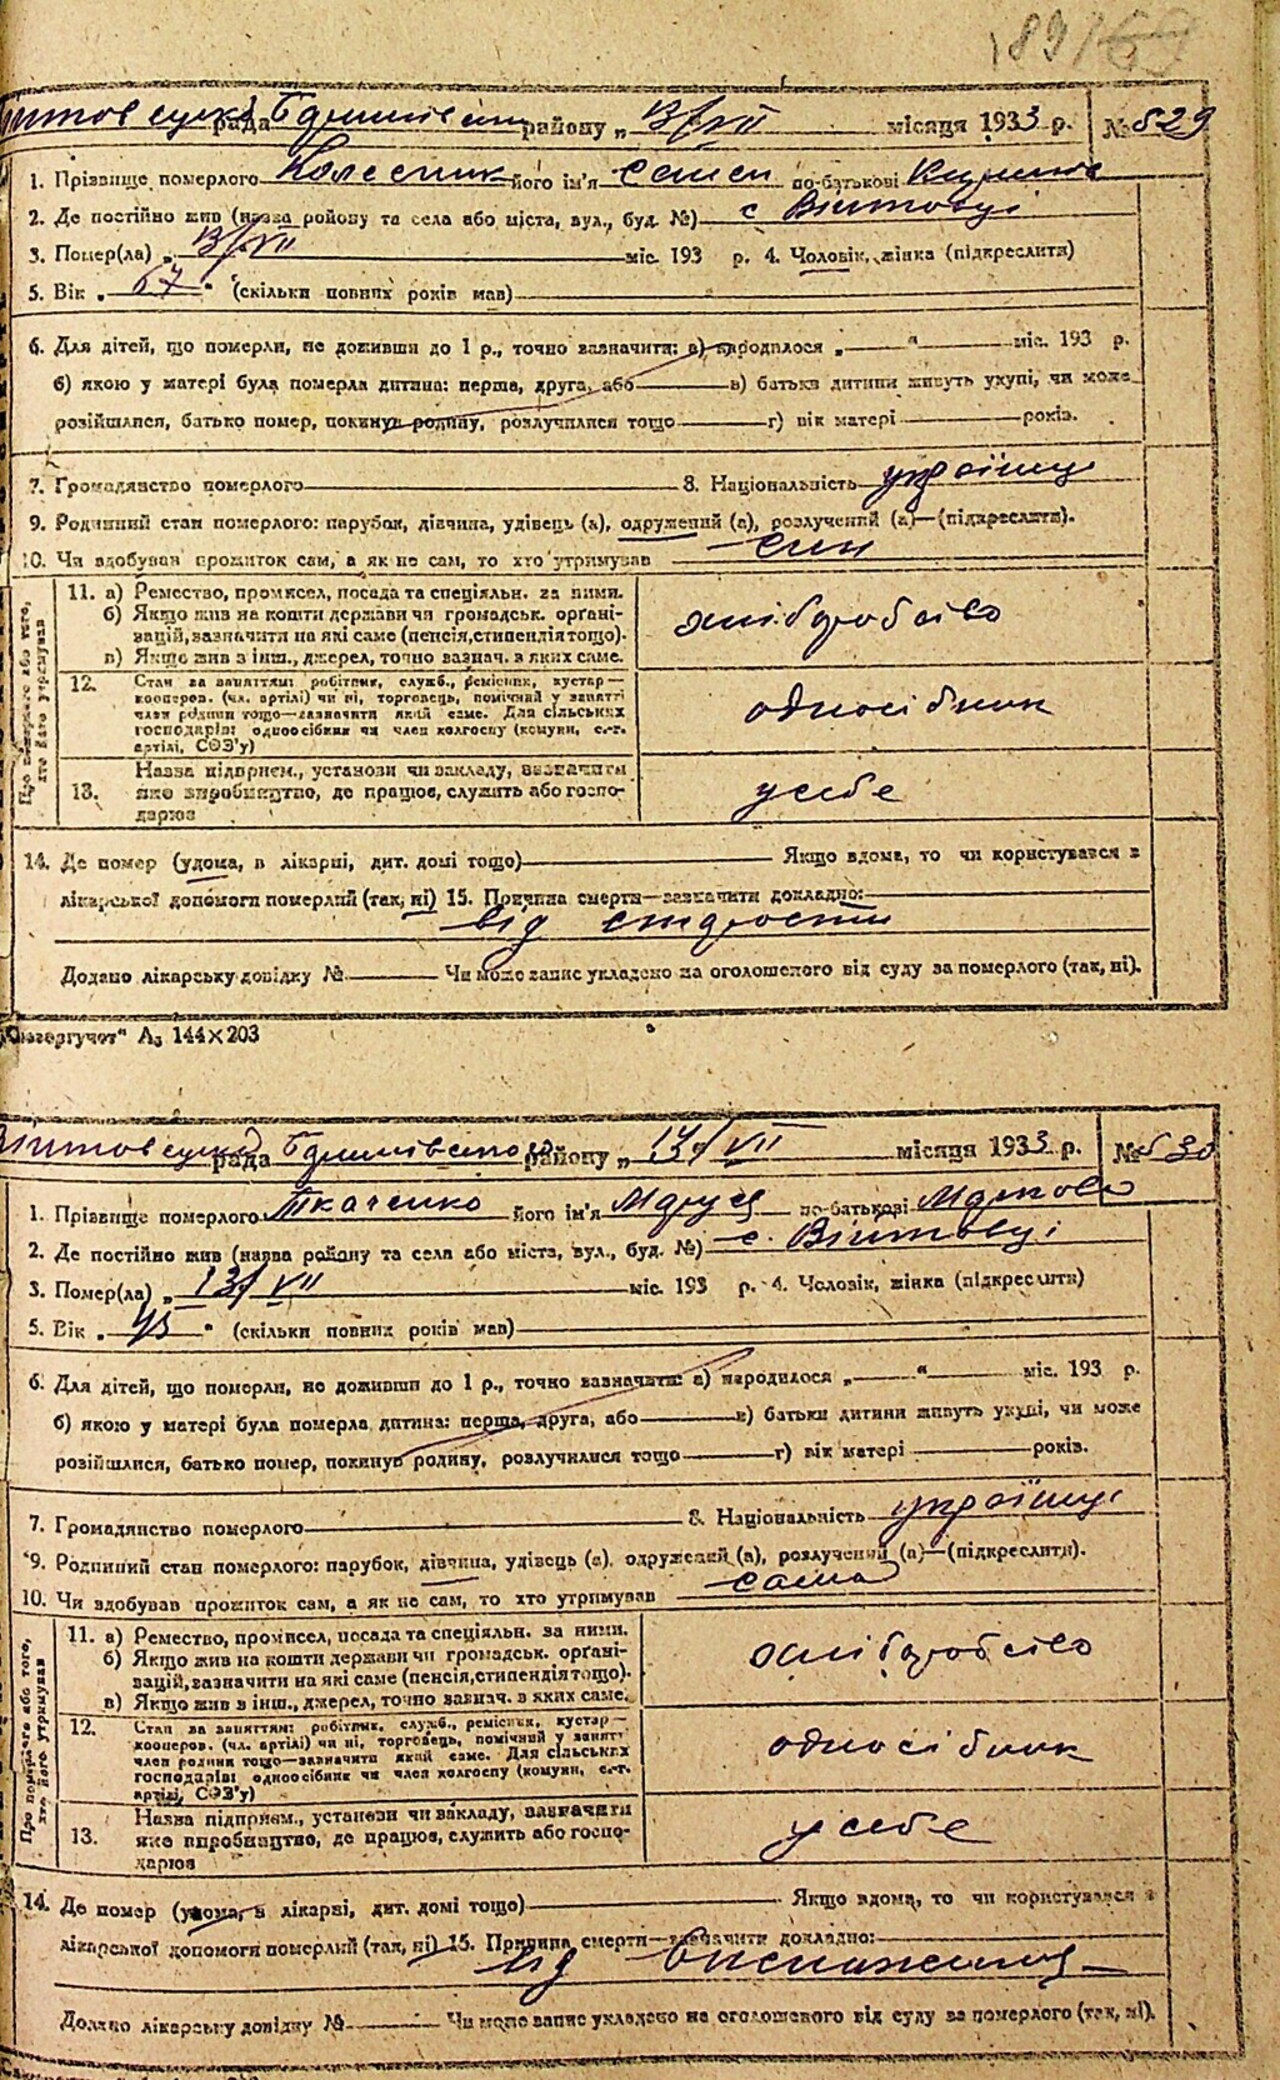 189
рада району „ 13/VII місяця 1933 р. № 529
1. Прізвище померлого Колесник його ім'я Семен по-батькові
2. Де постійно жив (назва району та села або міста, вул., буд. №) с Війтовці
3. Помер(ла) „ 13/VII міс. 193 р. 4. Чоловік, жінка (підкреслити)
5. Вік „ 67 " (скільки повних років мав)
6. Для дітей, що померли, не доживши до 1 р., точно зазначити: а) народилося „ " міс. 193 р.
б) якою у матері була померла дитина: перша, друга, або в) батьки дитини живуть укупі, чи може
розійшлися, батько помер, покинув родину, розлучилися тощо г) вік матері років.
7. Громадянство померлого 8. Національність українц
9. Родинний стан померлого: парубок, дівчина, удівець (а), одружений (а), розлучений (а)—(підкреслити).
10. Чи здобував прожиток сам, а як не сам, то хто утримував син
Про померлого або того, хто його утримував
11. а) Ремество, промисел, посада та спеціяльн. за ними.
б) Якщо жив на кошти держави чи громадськ. орґані-
зацій, зазначити на які саме (пенсія, стипендія тощо).
в) Якщо жив з інш., джерел, точно зазнач. з яких саме.
хліборобство
12. Стан за заняттям: робітник, служб., ремісник, кустар—
кооперов. (чл. артілі) чи ні, торговець, помічний у занятті
член родини тощо—зазначити який саме. Для сільських
господарів: одноосібник чи член колгоспу (комуни, с.-г.
артілі, СОЗ'у)
односібник
13. Назва підприєм., установи чи закладу, зазначити
яке виробництво, де працює, служить або госпо-
дарює
у себе
14. Де помер (удома, в лікарні, дит. домі тощо) Якщо вдома, то чи користувався з
лікарської допомоги померлий (так, ні) 15. Причина смерти—зазначити докладно:
від старости
Додано лікарську довідку № Чи може запис укладено на оголошеного від суду за померлого (так, ні).
А₃ 144×203
рада району „ 13/VII місяця 1933 р. № 530
1. Прізвище померлого Ткаченко його ім'я Маруся по-батькові Маркова
2. Де постійно жив (назва району та села або міста, вул., буд. №) с. Війтовці
3. Помер(ла) „ 13/VII міс. 193 р. 4. Чоловік, жінка (підкреслити)
5. Вік „ " (скільки повних років мав)
6. Для дітей, що померли, не доживши до 1 р., точно зазначити: а) народилося „ " міс. 193 р.
б) якою у матері була померла дитина: перша, друга, або в) батьки дитини живуть укупі, чи може
розійшлися, батько помер, покинув родину, розлучилися тощо г) вік матері років.
7. Громадянство померлого 8. Національність українц
9. Родинний стан померлого: парубок, дівчина, удівець (а), одружений (а), розлучений (а)—(підкреслити).
10. Чи здобував прожиток сам, а як не сам, то хто утримував сама
Про померлого або того, хто його утримував
11. а) Ремество, промисел, посада та спеціяльн. за ними.
б) Якщо жив на кошти держави чи громадськ. орґані-
зацій, зазначити на які саме (пенсія, стипендія тощо).
в) Якщо жив з інш., джерел, точно зазнач. в яких саме.
хліборобство
12. Стан за заняттям: робітник, служб., ремісник, кустар—
кооперов. (чл. артілі) чи ні, торговець, помічний у занятті
член родини тощо—зазначити який саме. Для сільських
господарів: одноосібник чи член колгоспу (комуни, с.-г.
артілі, СОЗ'у)
односібник
13. Назва підприєм., установи чи закладу, зазначити
яке виробництво, де працює, служить або госпо-
дарює
у себе
14. Де помер (удома, в лікарні, дит. домі тощо) Якщо вдома, то чи користувався з
лікарської допомоги померлий (так, ні) 15. Причина смерти—зазначити докладно:
від виснаження
Додано лікарську довідку № Чи може запис укладено на оголошеного від суду за померлого (так, ні).